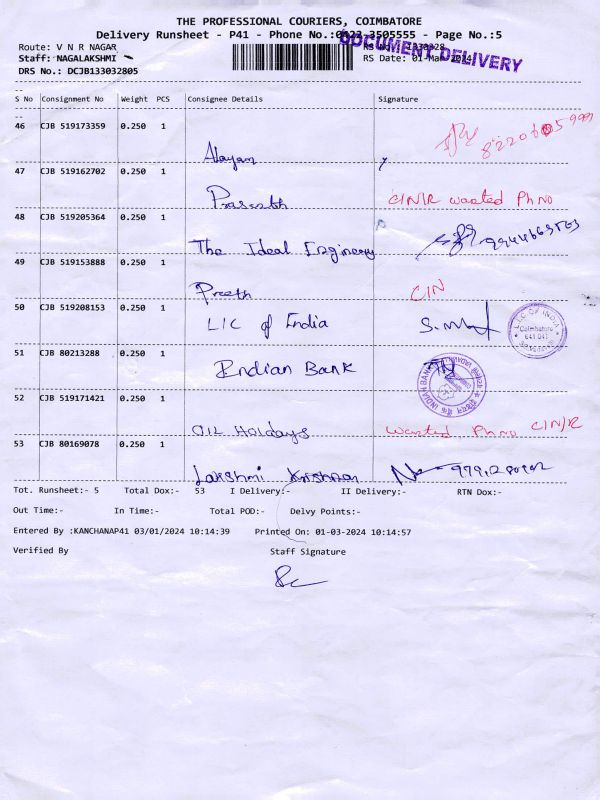 THE PROFESSIONAL COURIERS, COIMBATORE
Delivery Runsheet - P41 - Phone No.:0422-3505555 - Page No.:5
DOCUMENT DELIVERY
Route: V N R NAGAR
RS No.: 1330328
Staff: NAGALAKSHMI
RS Date: 01-Mar-2024
DRS No.: DCJB133032805
S No Consignment No Weight PCS Consignee Details Signature
46 CJB 519173359 0.250 1
Alayam
47 CJB 519162702 0.250 1
Prasanth C/N/R wanted Ph NO
48 CJB 519205364 0.250 1
The Ideal Engineers
49 CJB 519153888 0.250 1
Preeth C/N
50 CJB 519208153 0.250 1
LIC of India
L.I.C OF INDIA
Coimbatore
641 041
51 CJB 80213288 0.250 1
Indian Bank
INDIAN BANK
52 CJB 519171421 0.250 1
Holidays wanted Ph no C/N/R
53 CJB 80169078 0.250 1
Lakshmi Krishnan
Tot. Runsheet:- 5 Total Dox:- 53 I Delivery:- II Delivery:- RTN Dox:-
Out Time:- In Time:- Total POD:- Delvy Points:-
Entered By :KANCHANAP41 03/01/2024 10:14:39 Printed On: 01-03-2024 10:14:57
Verified By Staff Signature